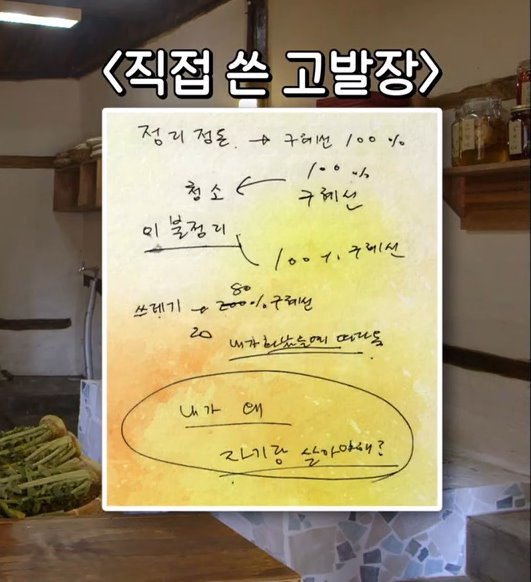 <직접 쓴 고발장>
정리정돈. → 구혜선 100%
청소 ← 100% 구혜선
이불정리
100% 구혜선
쓰레기 → 80% 구혜선
20
내가
내가 왜
자기랑 살아야해?